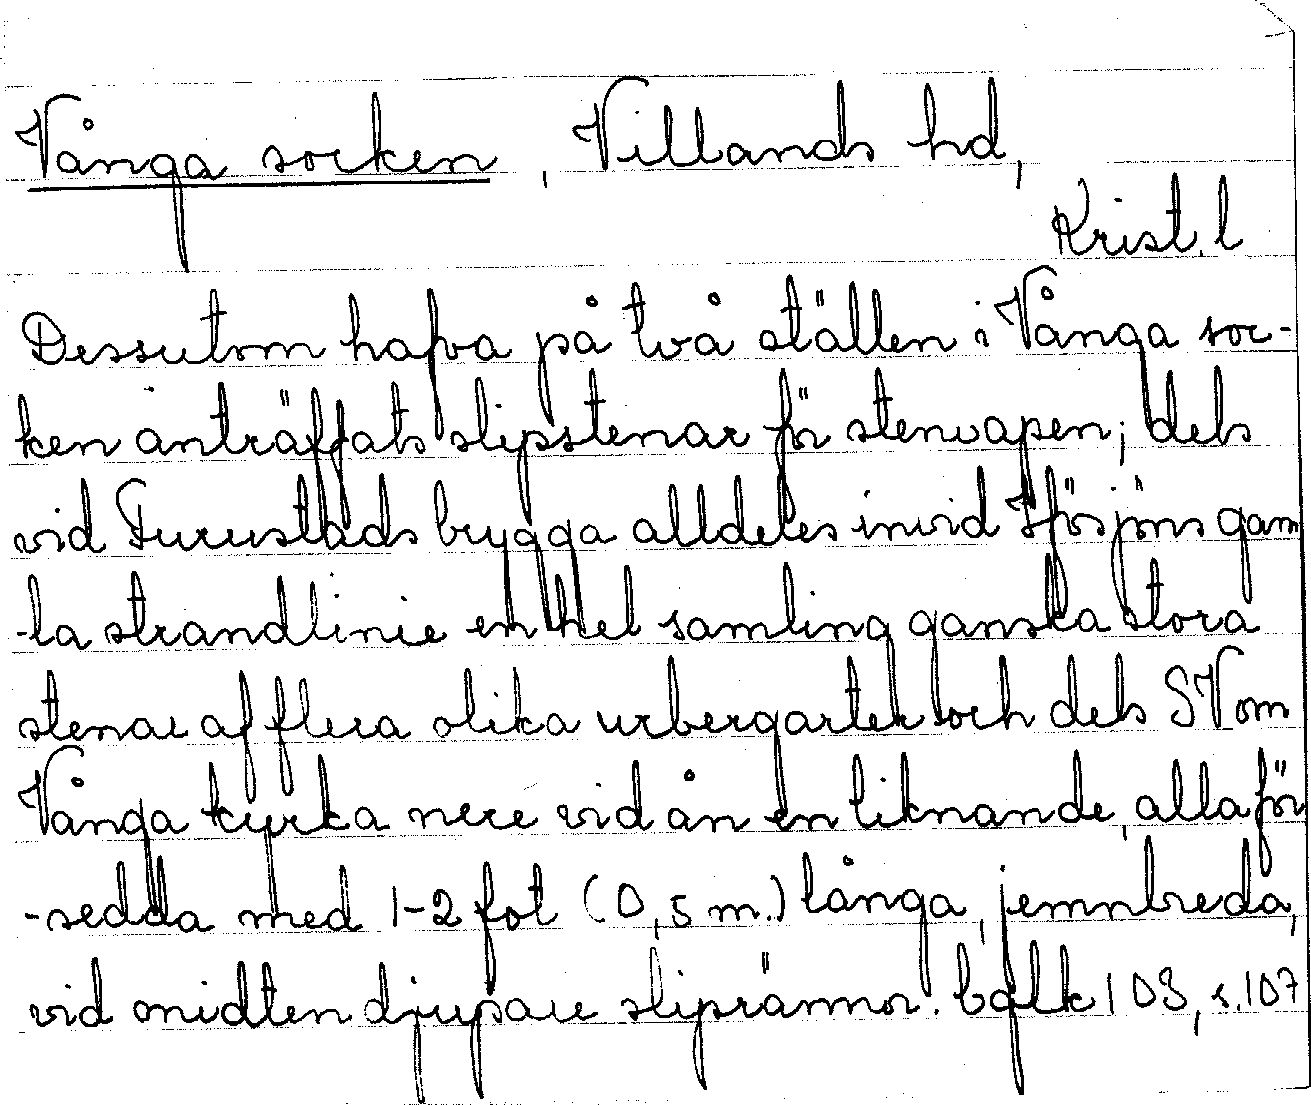 Vånga socken, Villands hd,
Krist. l
Dessutom hafva på två ställen i Vånga soc-
ken anträffats slipstenar för stenvapen; dels
vid Furustads brygga alldeles invid Ifösjöns gam
-la strandlinie en hel samling ganska stora
stenar af flera olika urbergarter och dels SV om
Vånga kyrka nere vid ån en liknande, alla för
-sedda med 1-2 fot (0,5 m.) långa, jemnbreda,
vid midten djupare sliprännor. 108, s. 107